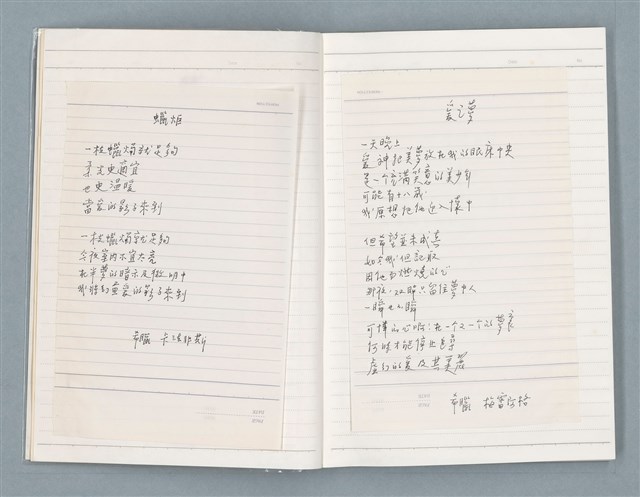 蠟炬
一枝蠟燭就足夠
柔光更適宜
也更溫暖
當愛的影子來到
一枝蠟燭就足夠
今夜室內不宜太亮
在半夢的暗示及微明中
我將幻愛的影子來到
希臘 卡法非斯
愛之夢
一天晚上
愛神把美夢放在我的眼床中央
是一個充滿笑意的美少年
可能有十八歲
我原想把他迎入懷中
但希望並未成真
如今我但記取
因他而燃燒的
那夜,雙眸只留住夢中人
一瞬也不瞬
可憐的心啊:在一個又一個的夢裏
何時才能停止追尋
虛幻的愛及其美麗
希臘 梅雷阿格